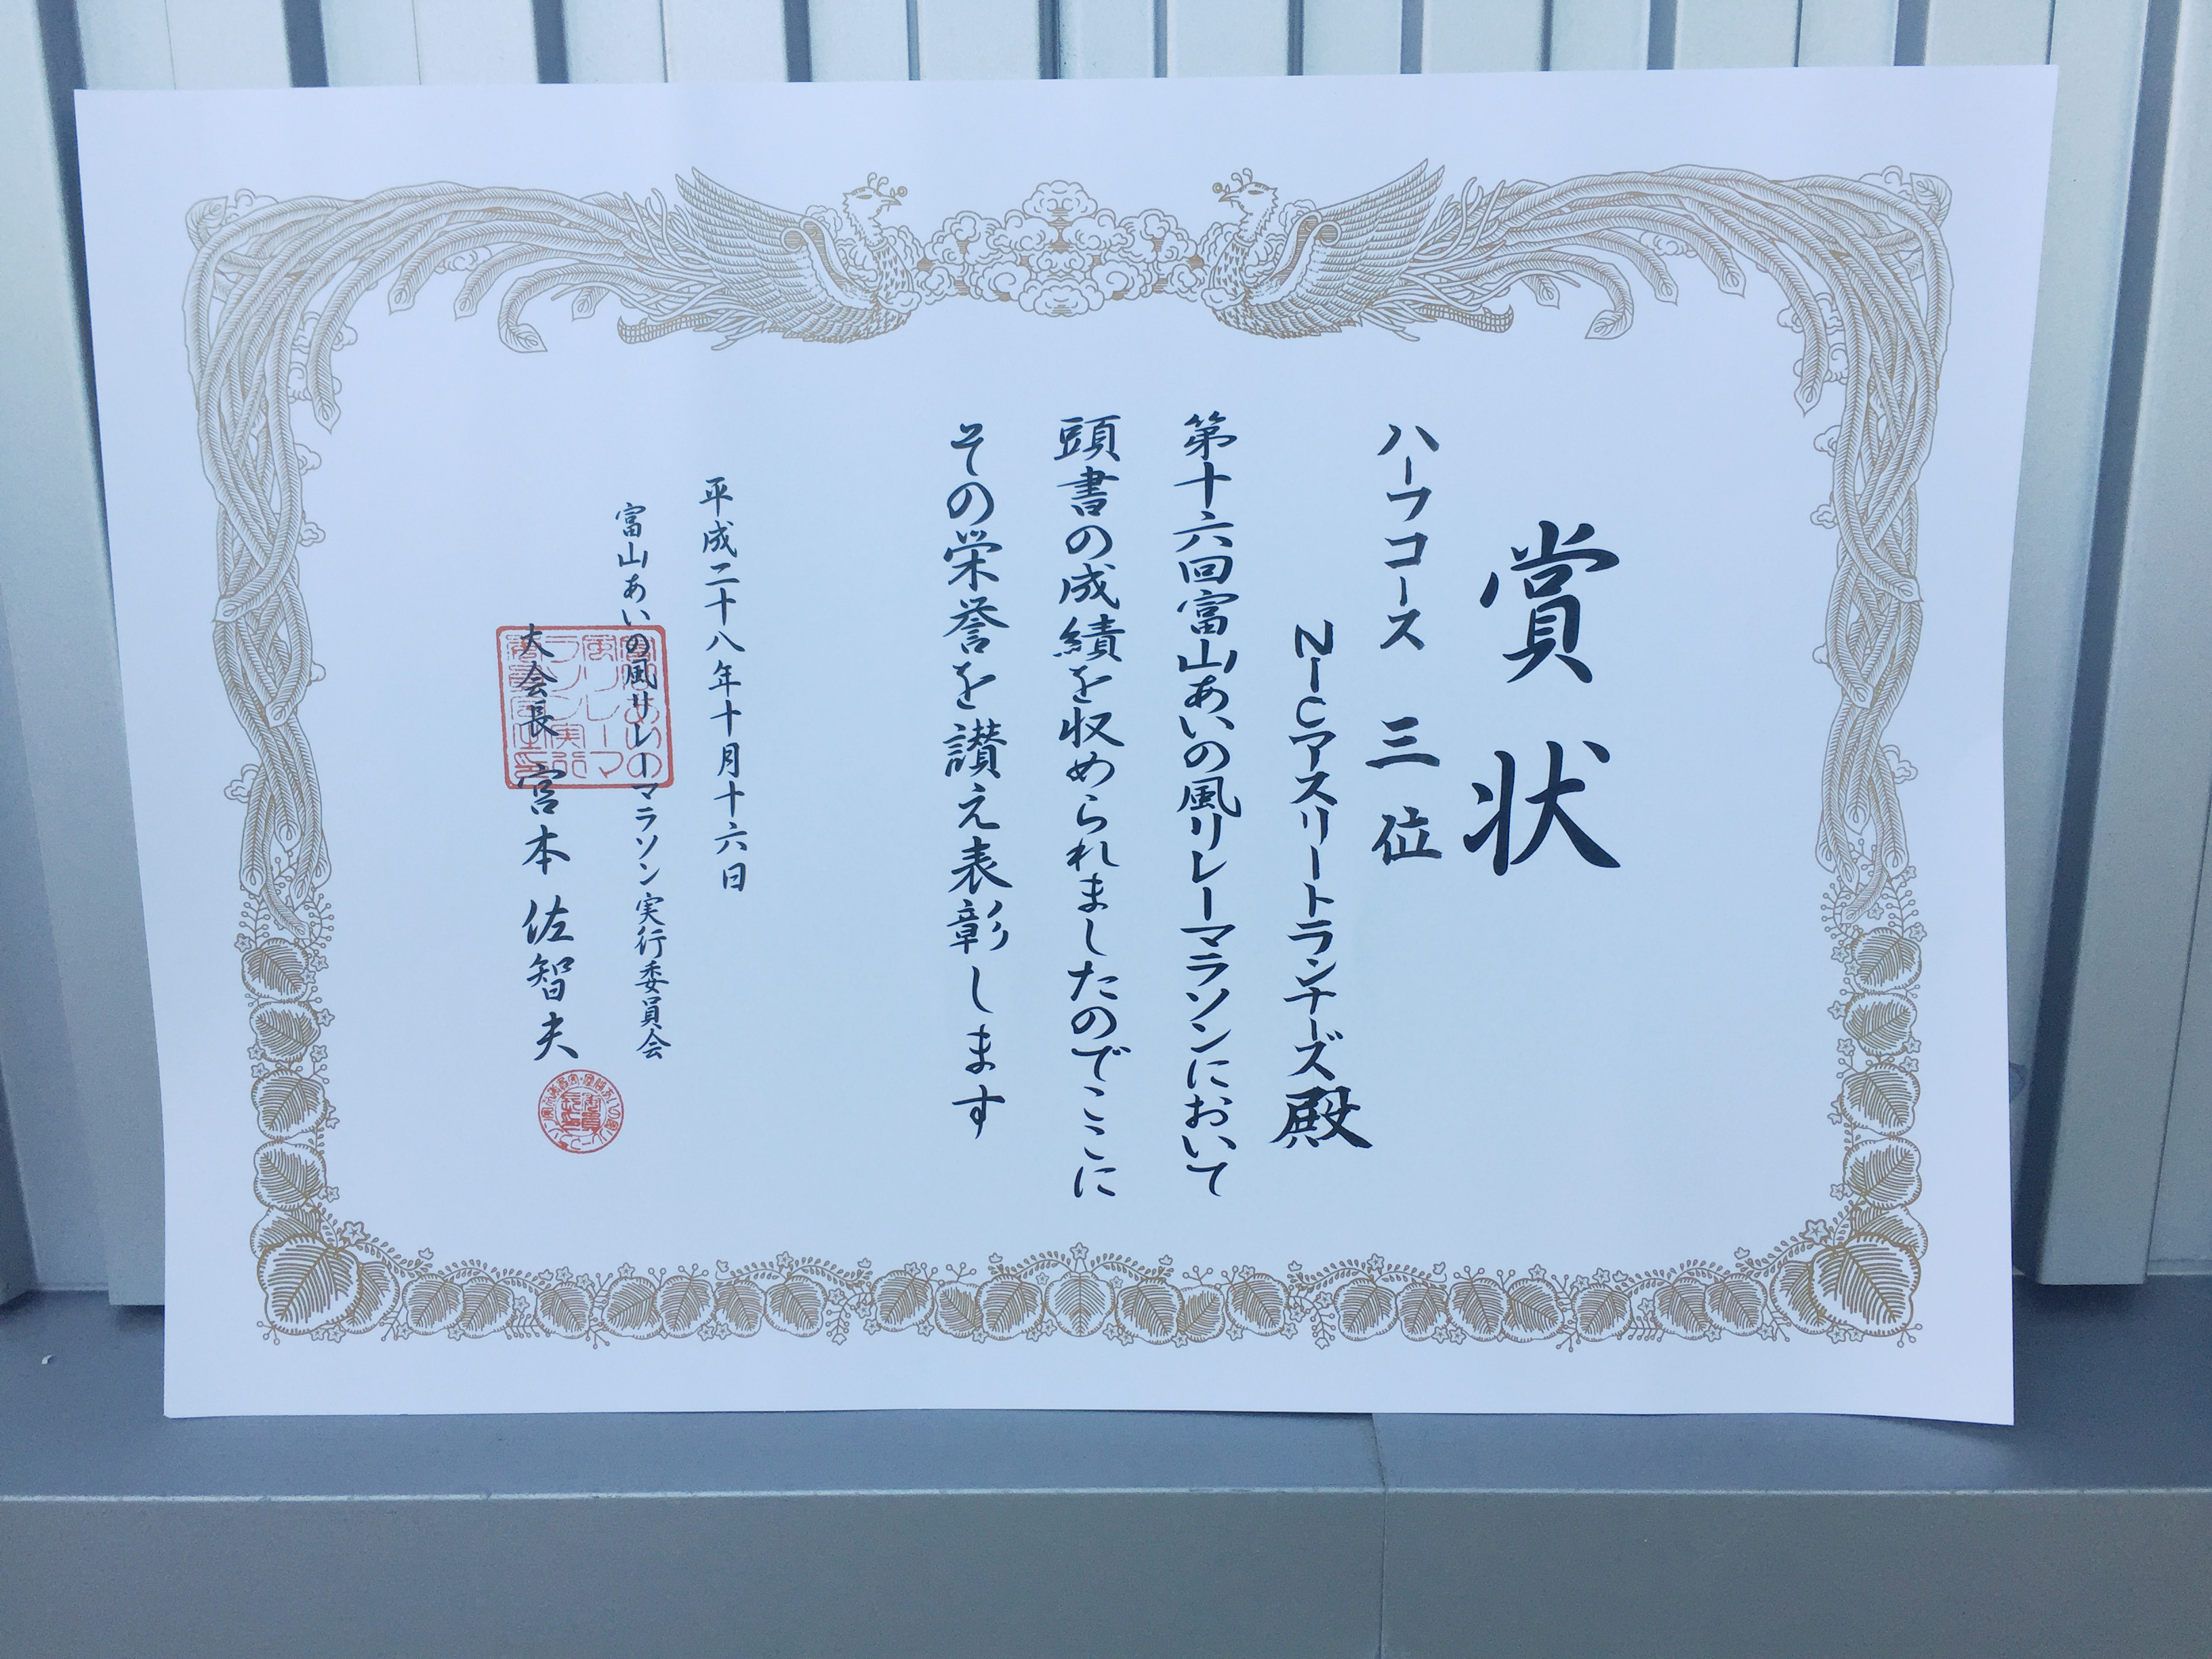 賞状
ハーフコース 三位
NICアスリートランナーズ殿
第十六回富山あいの風リレーマラソンにおいて
頭書の成績を収められましたのでここに
その栄誉を讃え表彰します
平成二十八年十月十六日
富山あいの風リレーマラソン実行委員会
大会長 宮本佐智夫